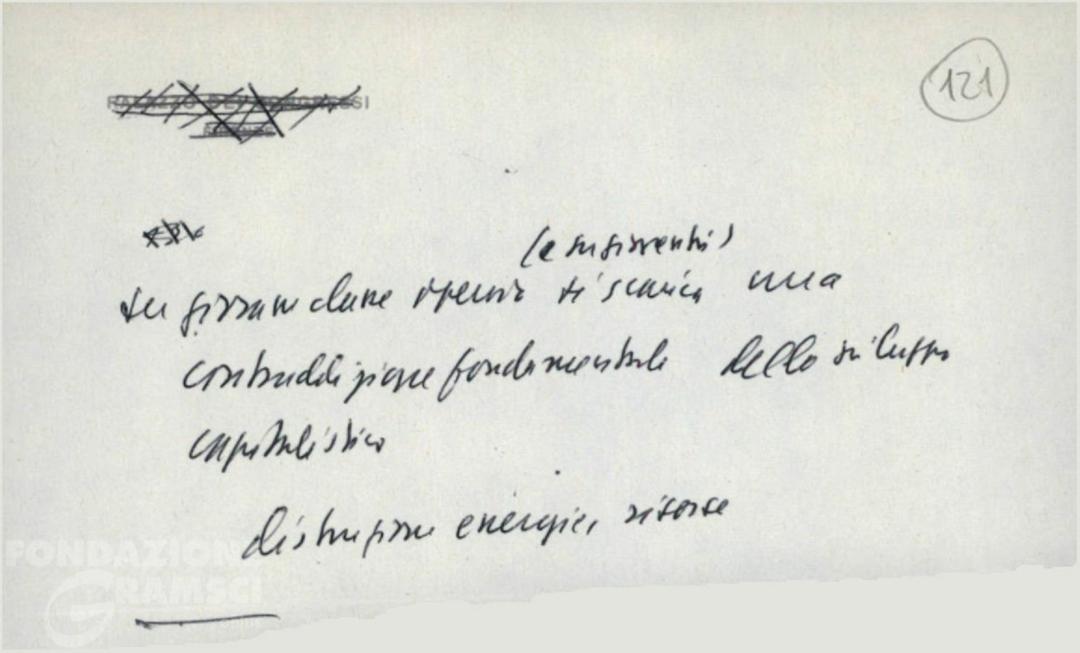 121
(e su gioventù)
su giovane classe operaia si scarica una
contraddizione fondamentale dello sviluppo
capitalistico
distruzione energie, risorse
FONDAZIONE
GRAMSCI